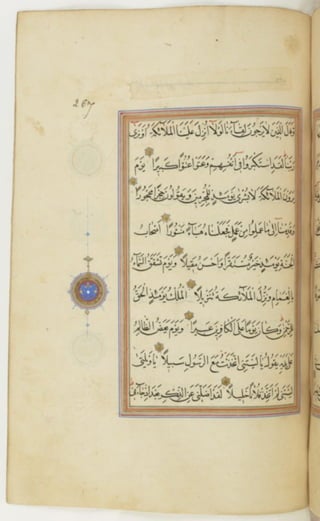 267
وقال الذين لا يرجون لقاءنا لولا أنزل علينا الملائكة أو نرى
ربنا لقد استكبروا في أنفسهم وعتوا عتوا كبيرا يوم
يرون الملائكة لا بشرى يومئذ للمجرمين ويقولون حجرا محجورا
وقدمنا إلى ما عملوا من عمل فجعلناه هباء منثورا أصحاب
الجنة يومئذ خير مستقرا وأحسن مقيلا ويوم تشقق السماء
بالغمام ونزل الملائكة تنزيلا الملك يومئذ الحق
للرحمن وكان يوما على الكافرين عسيرا ويوم يعض الظالم
على يديه يقول يا ليتني اتخذت مع الرسول سبيلا يا ويلتى
ليتني لم أتخذ فلانا خليلا لقد أضلني عن الذكر بعد إذ جاءني